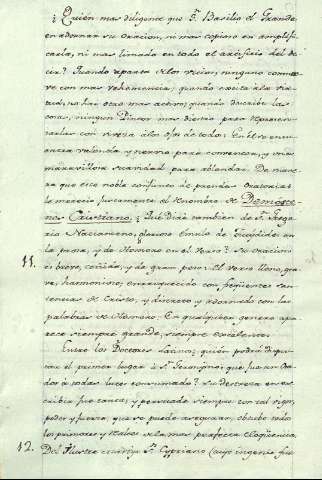 ¿Quién mas diligente que Sn. Basilio el Grande
en adornar su oracion, ni mas copioso en amplifi-
carla, ni mas limado en todo el artificio del de
cir? Quando aparta de los vicios, ninguno conmue
ve con mas vehemencia; quando excita a la vir
tud, no hay otro mas activo; quando describe las
cosas, ningun Pintor mas diestro para represen
tarlas con viveza a los ojos de todos: En él se en
cuentra valentia y nervio para convencer, y una
maravillosa suavidad para ablandar. De mane
ra que este noble conjunto de prendas Oratorias
le merecio justamente el renombre de Demoste-
nes Cristiano. ¿Qué diré tambien de Sn. Grego
rio Nacianceno, glorioso émulo de Tucydides en
la prosa, y de Homero en el verso? Su oracion
11. es breve, ceñida, y de gran peso: El verso lleno, gra
ve, harmonioso, enriquecido con freqüentes sen
tencias de Cristo, y discreto y adornado con las
palabras de Homero. En qualquiera genero apa
rece siempre grande, siempre excelente.
Entre los Doctores Latinos; quién podrá dispu-
tar el primer lugar á Sn. Geronimo, que fue un Ora
dor á todas luces consumado? Su destreza en es
cribir fue tanta; y persuade siempre con tal vigor,
poder y fuerza, que se puede asegurar, obtubo todo
los primores y realces de la mas perfecta eloqüencia.
12. Del Ilustre martir Sn. Cypriano (cuyo ingenio fue